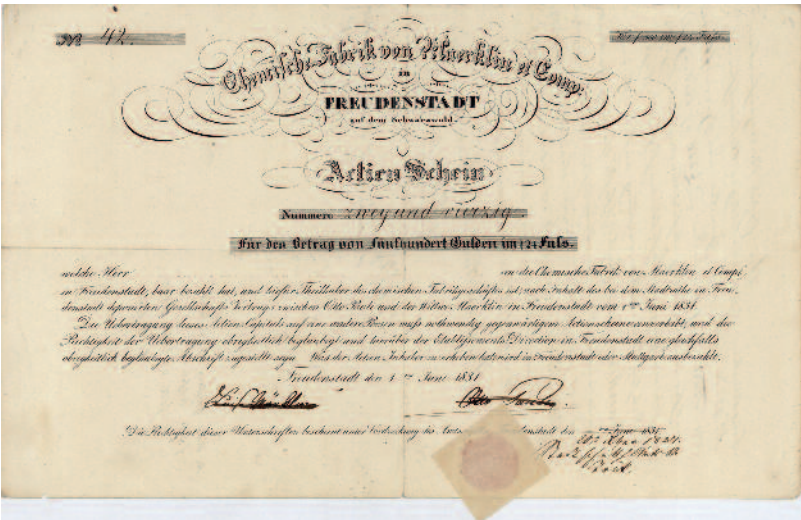 No 42.
Für f 500 im f 24 Fuss.
Chemische Fabrik von Maerklin et Comp.
in
FREUDENSTADT
auf dem Schwarzwald.
Actien Schein
Nummero zwey und vierzig.
Für den Betrag von Fünfhundert Gulden im f 24 Fuss.
welche Herr an die Chemische Fabrik von Maerklin et Comp.
in Freudenstadt, baar bezahlt hat, und hiefür Theilhaber des chemischen Fabrikgeschäftes ist, nach Inhalt des bei dem Stadtrathe in Freu-
denstadt deponirten Gesellschafts Vertrags zwischen Otto und der Wittwe Maerklin in Freudenstadt vom 1ten Juni 1831.
Die Uebertragung dieses Actien Capitals auf eine andere Person muss nothwendig gegenwärtigem Actienschein, und die
Richtigkeit der Uebertragung obrigkeitlich beglaubigt und hierüber der Etablissements Direction in Freudenstadt eine gleichfalls
obrigkeitlich beglaubigte Abschrift zugestellt seyn. Was der Actien Inhaber zu erheben hat, wird in Freudenstadt oder Stuttgart ausbezahlt.
Freudenstadt den 1ten Juni 1831
Die Richtigkeit dieser Unterschriften bescheint unter Vordruckung des Amts Freudenstadt den Juni 1831
1831.